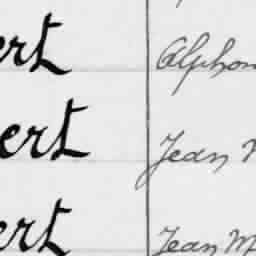 ert Alphon
ert Jean
ert Jean M